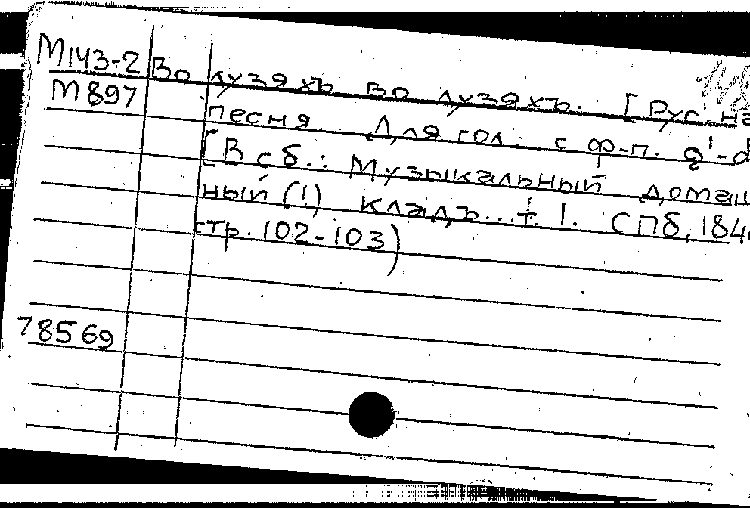 М143-2 Во лузяхъ во лузяхъ. [Рус. на
М897
песня Для гол. с ф-п. g¹-d
[В сб.: Музыкальный домаш
ный (!) кладъ... т. I. СПб, 184
стр. 102-103)
78569